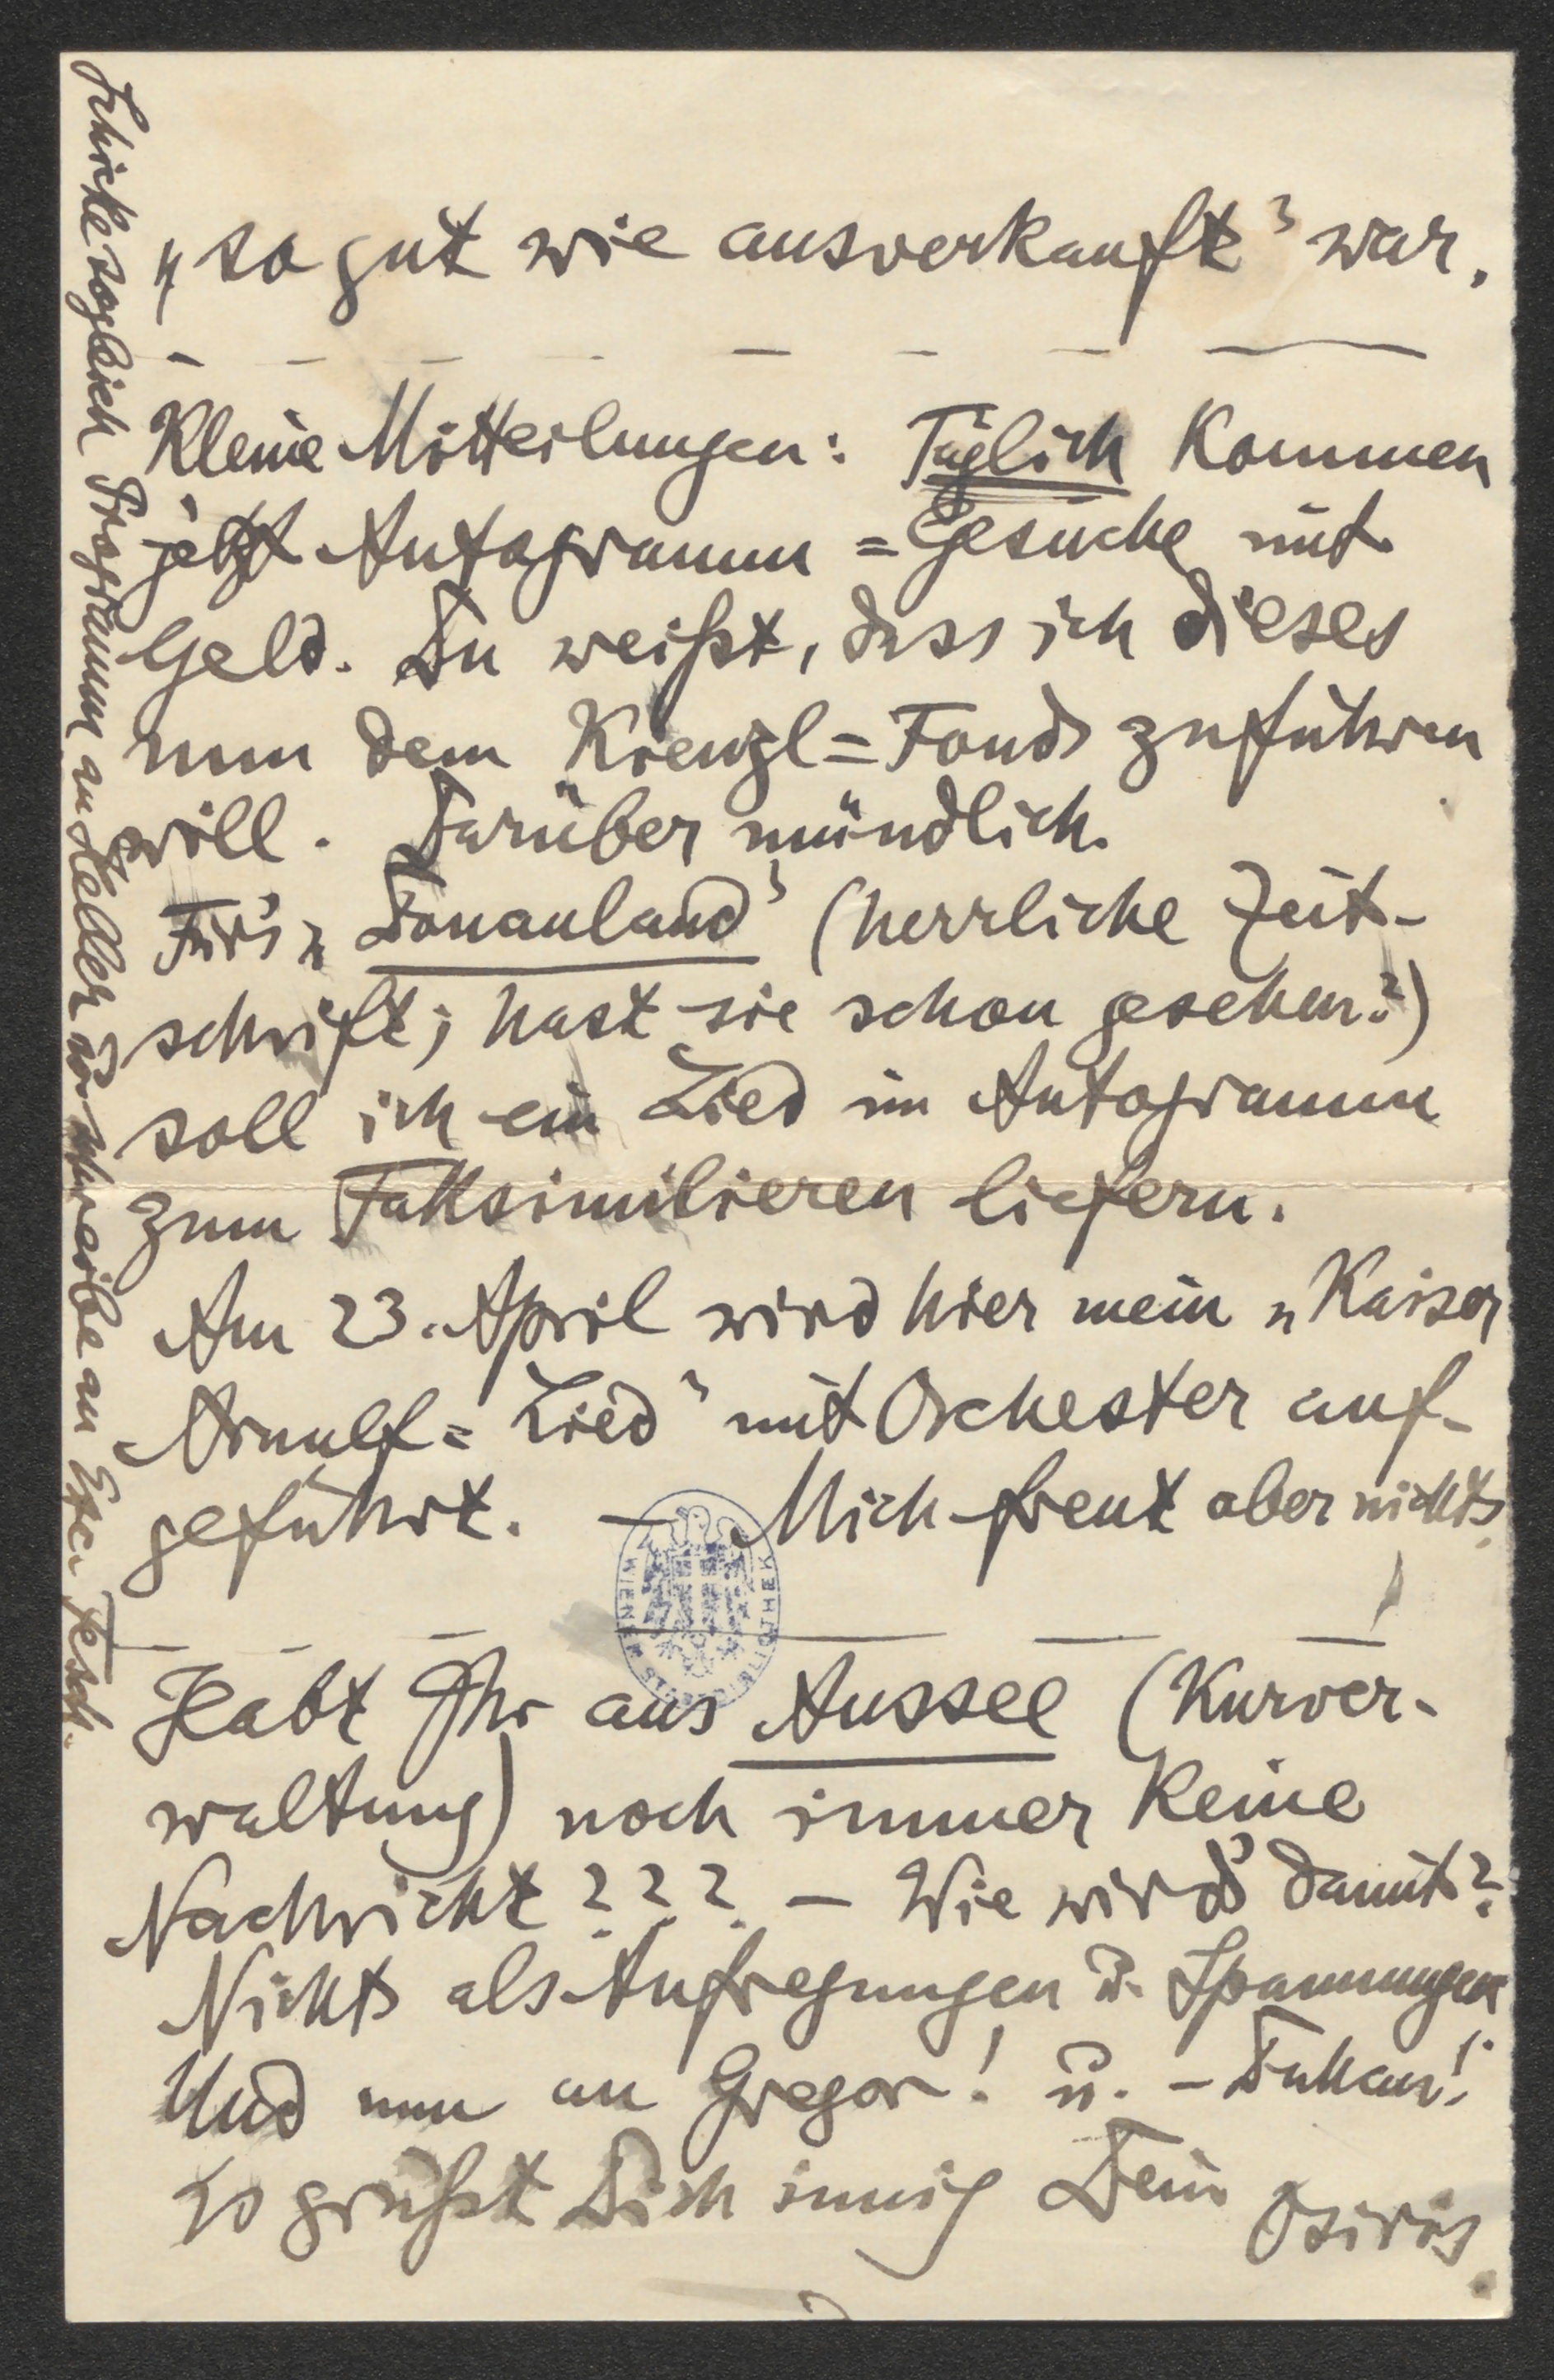 „so gut wie ausverkauft“ war.
Kleine Mitteilungen: Täglich kommen
jetzt Autogramm=Gesuche mit
Geld. Du weißt, dass ich dieses
nun dem Kienzl=Fonds zuführen
will. Darüber mündlich.
Für's „Donauland“ (herrliche Zeit-
schrift; hast sie schon gesehen?)
soll ich ein Lied im Autogramm
zum Faksimilieren liefern.
Am 23. April wird hier mein „Kaiser
Arnulf=Lied“ mit Orchester auf-
geführt. — Mich freut aber nichts.
Habt Ihr aus Aussee (Kurver-
waltung) noch immer keine
Nachricht??? — Wie wird's damit?
Nichts als Aufregungen u. Spannungen
Und nun an Gregor! u. —
So grüßt Dich innig Dein Osiris.
Schicke sogleich Programm an Heller u. schreibe an Exc.
WIENER STADTBIBLIOTHEK